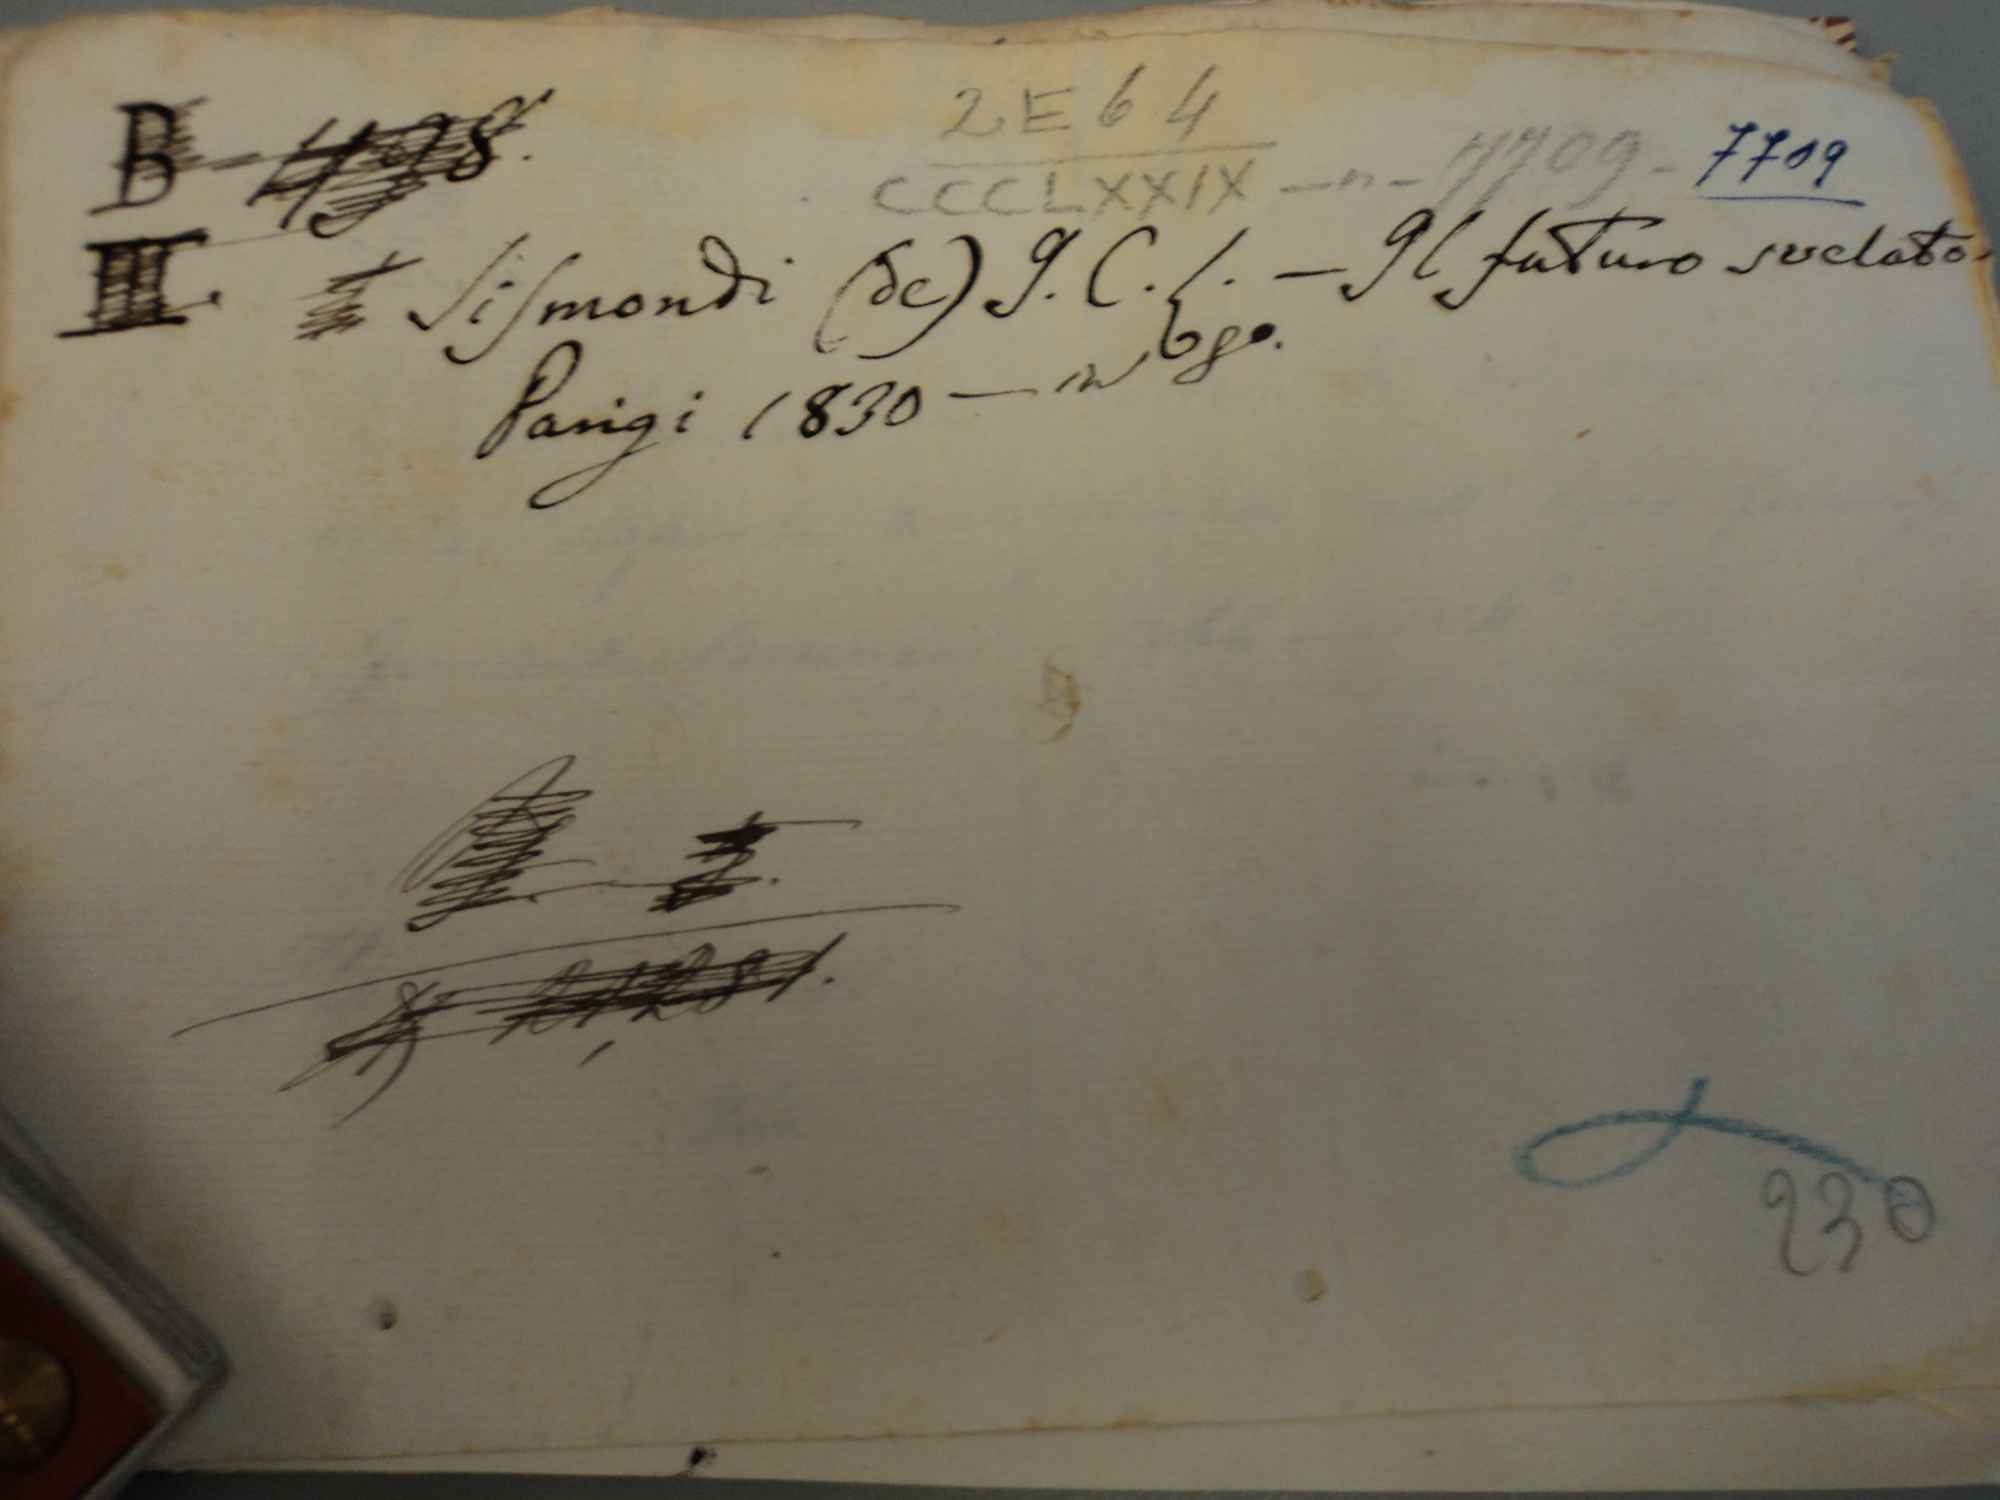 B - 498.
2E64
CCCLXXIX - n - 7709 - 7709
III. Sismondi (de) G. C. L. - Il futuro svelato.
Parigi 1830 - in 8o.
230